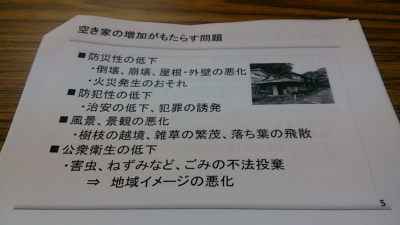 空き家の増加がもたらす問題
■防災性の低下
・倒壊、崩壊、屋根・外壁の悪化
・火災発生のおそれ
■防犯性の低下
・治安の低下、犯罪の誘発
■風景、景観の悪化
・樹枝の越境、雑草の繁茂、落ち葉の飛散
■公衆衛生の低下
・害虫、ねずみなど、ごみの不法投棄
⇒ 地域イメージの悪化
5